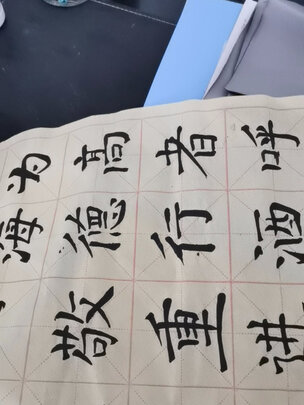 呼酒进
者行重
高德敬
为海